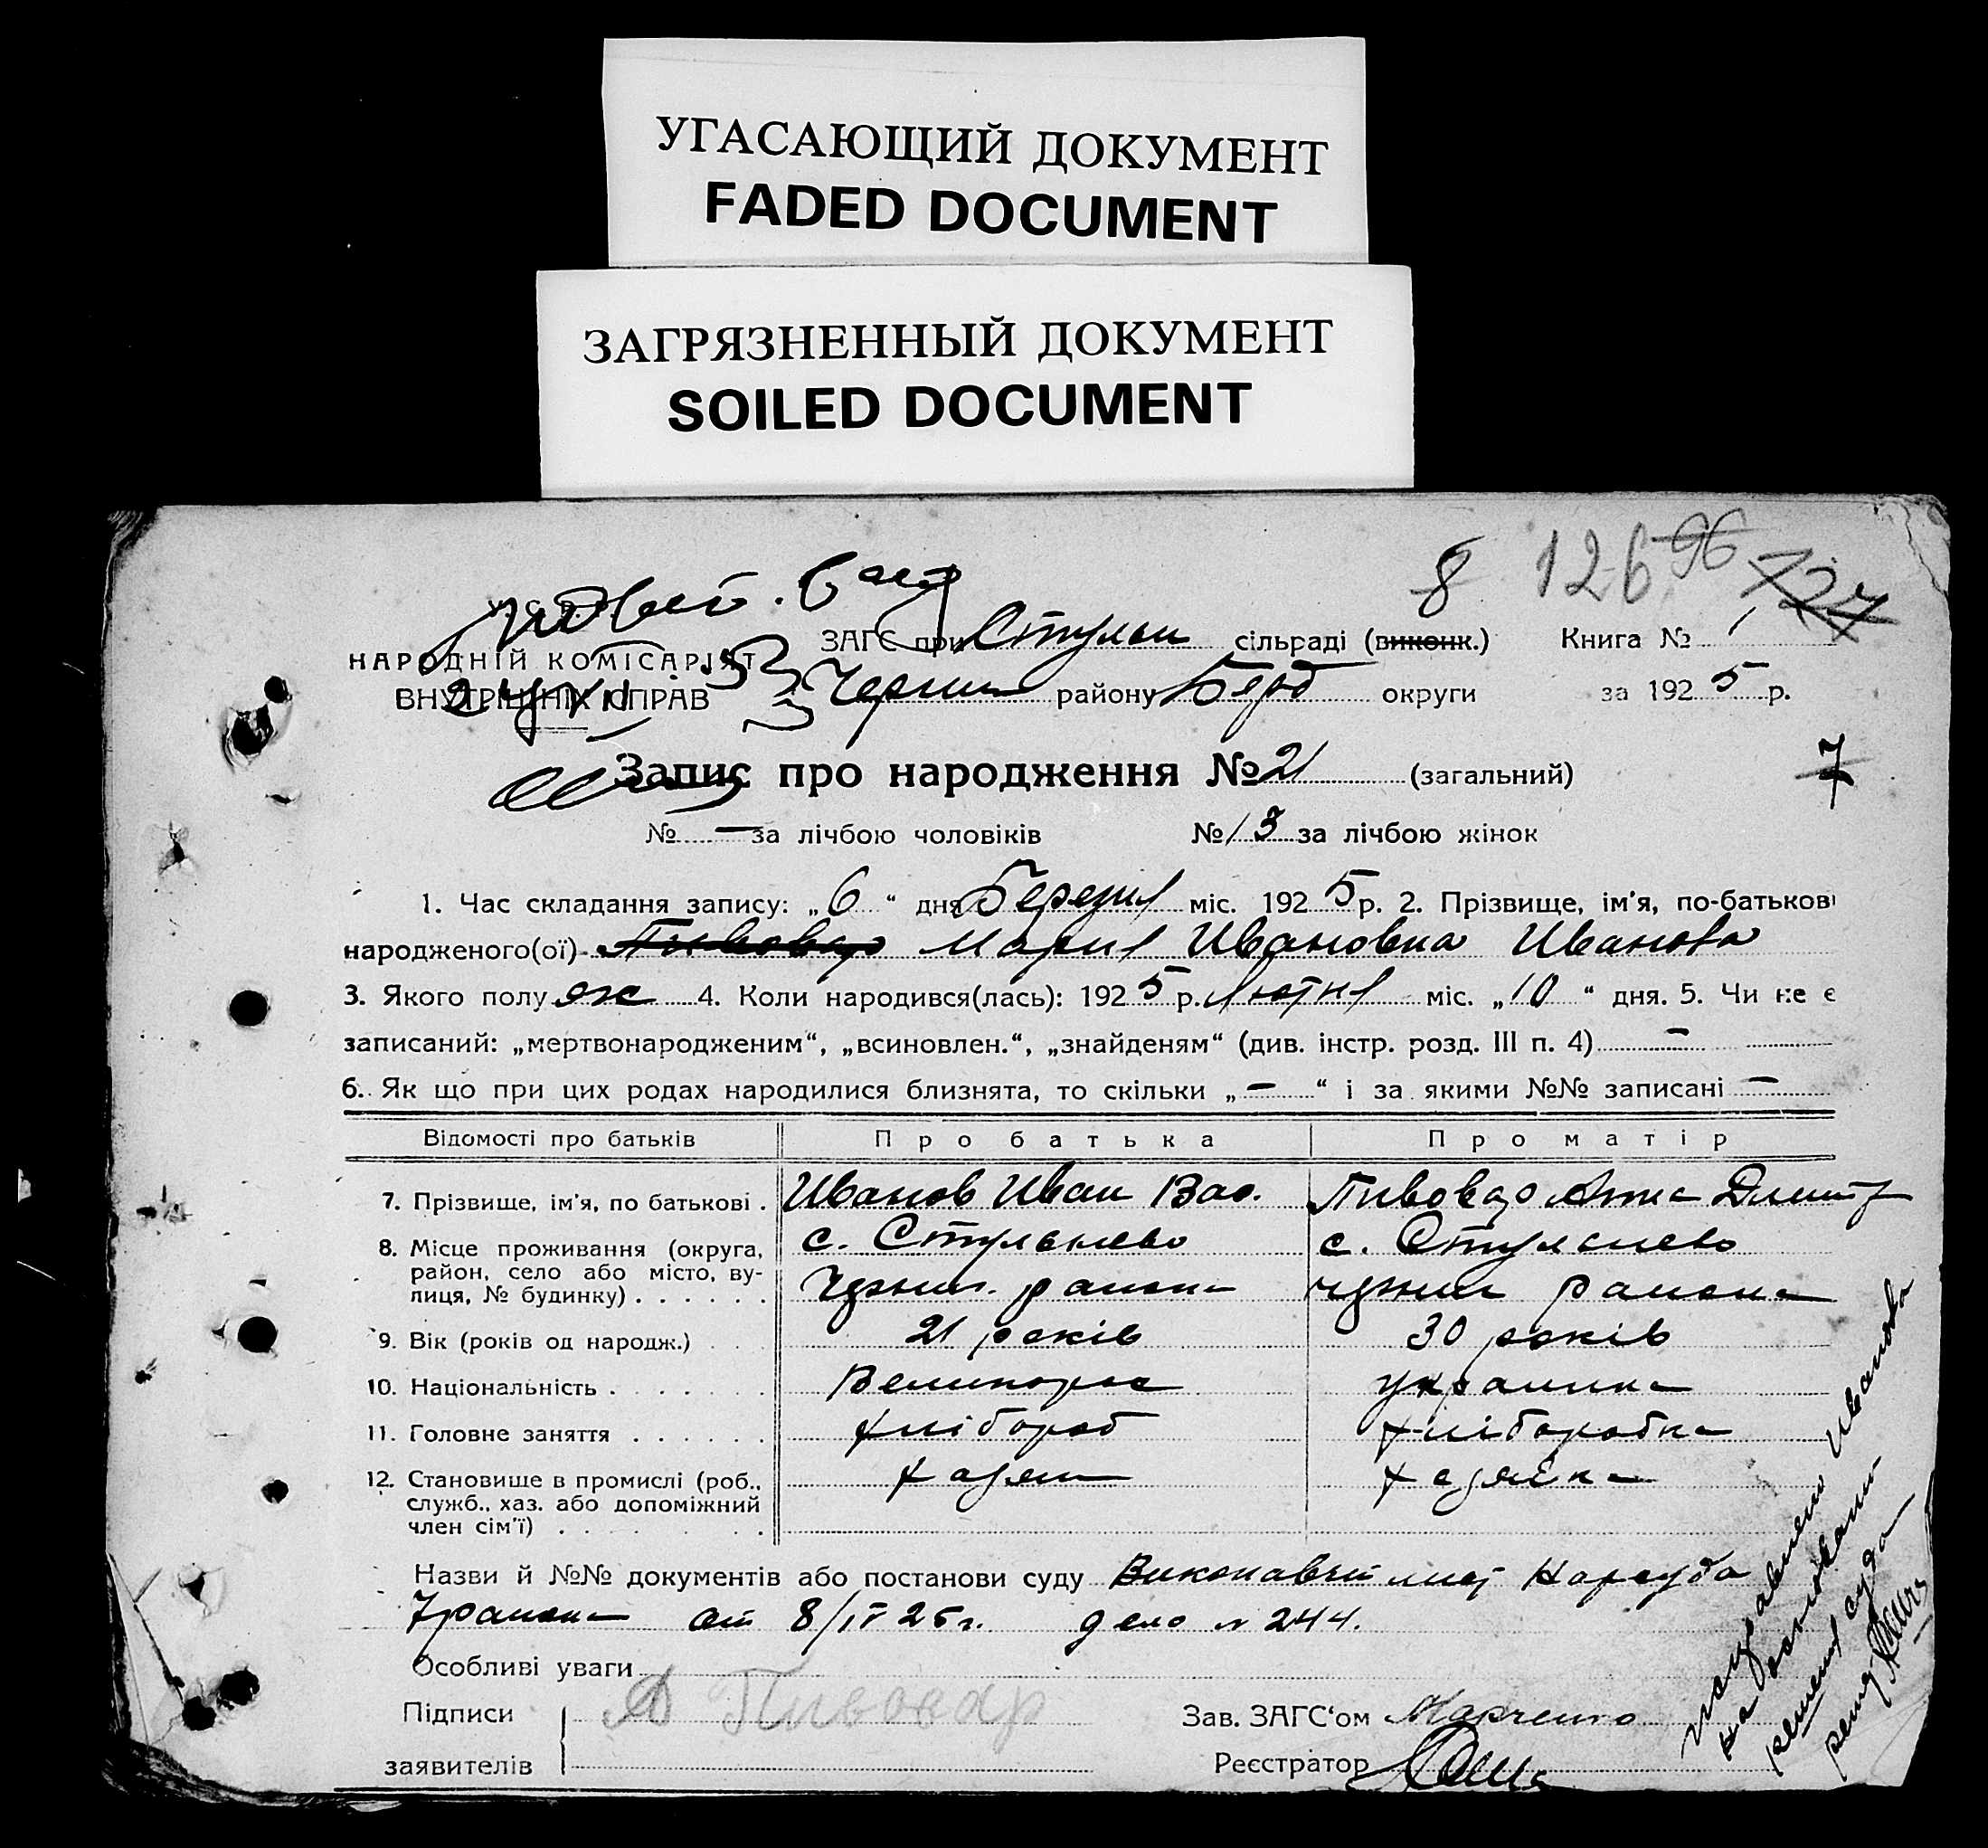 УГАСАЮЩИЙ ДОКУМЕНТ
FADED DOCUMENT
ЗАГРЯЗНЕННЫЙ ДОКУМЕНТ
SOILED DOCUMENT
8 126 96 127
ЗАГС при Стульн сільраді (виконк.) Книга № 1
НАРОДНІЙ КОМІСАРІЯТ
ВНУТРІШНІХ СПРАВ
Черниг району Берд округи за 1925 р.
Запис про народження № 21 (загальний)
7
№ — за лічбою чоловіків № 13 за лічбою жінок
1. Час складання запису: „6“ дня Березня міс. 1925 р. 2. Прізвище, ім'я, по-батькові
народженого(ої) Пивовар Мария Ивановна Иванова
3. Якого полу ж 4. Коли народився(лась): 1925 р. Лютня міс. „10“ дня. 5. Чи не є
записаний: „мертвонародженим“, „всиновлен.“, „знайденям“ (див. інстр. розд. III п. 4) —
6. Як що при цих родах народилися близнята, то скільки „—“ і за якими №№ записані —
Відомості про батьків Про батька Про матір
7. Прізвище, ім'я, по батькові . Иванов Иван Вас. Пивовар Анна Дмитр
8. Місце проживання (округа, район, село або місто, вулиця, № будинку) . . . . . . с. Стульнево с. Стульнево
Черниг. района черниг района
9. Вік (років од народж.) . . . 21 років 30 років
10. Національність . . . . . . . Великорос украинка
11. Головне заняття . . . . . . хлібороб хліборобка
12. Становище в промислі (роб., служб., хаз. або допоміжний член сім'ї) . . . . . . . хазяин хазяйка
Назви й №№ документів або постанови суду Виконавчий лист Нарсуда
7 района от 8/IV 25 г. дело № 244.
Особливі уваги
Підписи А Пивовар Зав. ЗАГС'ом Марченко
заявителів Реєстратор
исправлено Иванова
на основании
решения суда